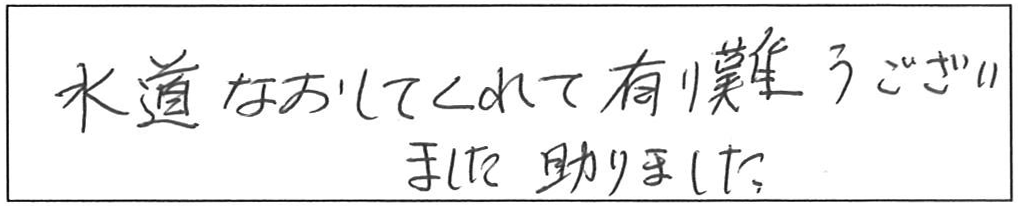 水道なおしてくれて有り難うござい
ました 助りました